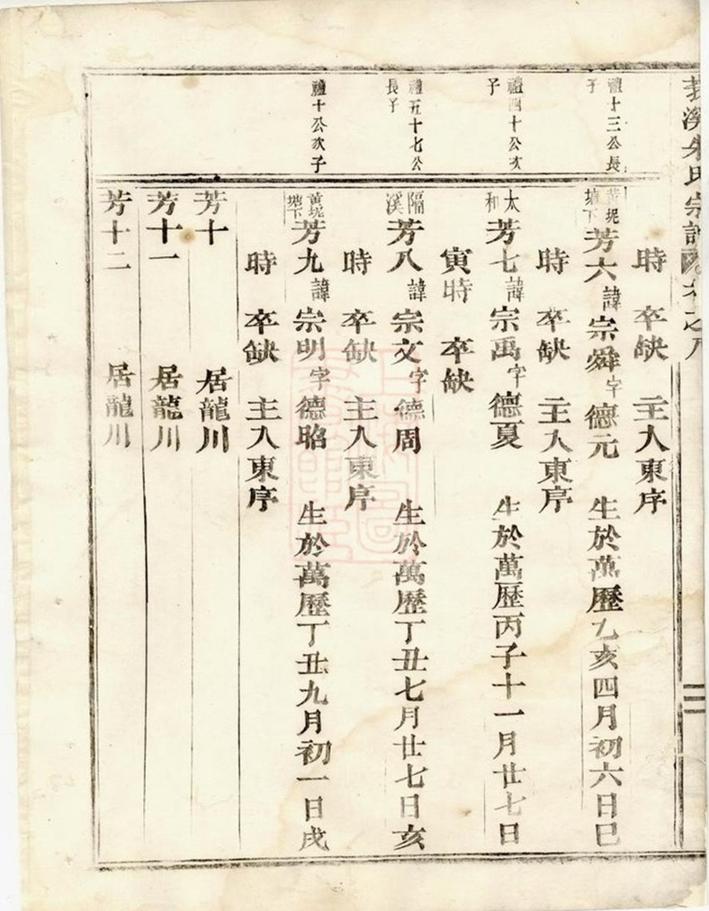 溪朱氏宗譜 卷之八
時 卒缺 主入東序
禮十三公長子
黃坭墈下 芳六 諱宗舜 字德元 生於萬歷乙亥四月初六日巳
時 卒缺 主入東序
禮四十公次子
太和 芳七 諱宗禹 字德夏 生於萬歷丙子十一月廿七日
寅時 卒缺
禮五十七公長子
隔溪 芳八 諱宗文 字德周 生於萬歷丁丑七月廿七日亥
時 卒缺 主入東序
禮十公次子
黃坭墈下 芳九 諱宗明 字德昭 生於萬歷丁丑九月初一日戌
時 卒缺 主入東序
芳十 居龍川
芳十一 居龍川
芳十二 居龍川